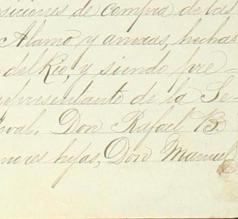 siciones de compra de los
Alamo y anexas, hechas
del Rio, y siendo pre-
representante de la Se-
oval, Don Rafael B.
nores hijos, Don Manuel